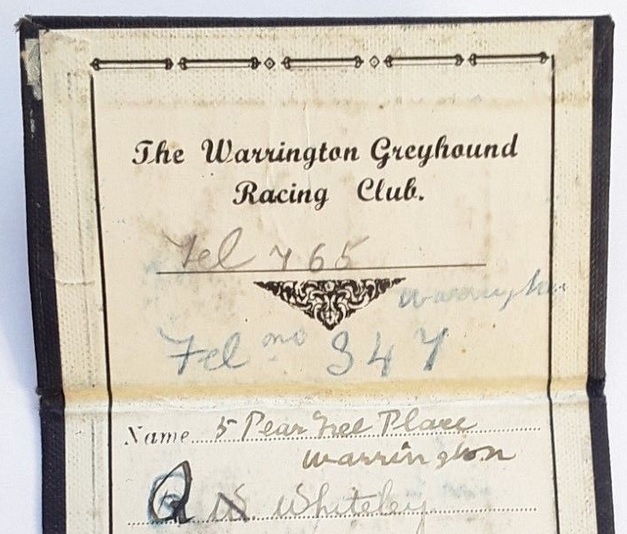 The Warrington Greyhound
Racing Club.
Tel 765
Warrington
Tel no 347
Name 5 Pear Tree Place
Warrington
W. Whiteley